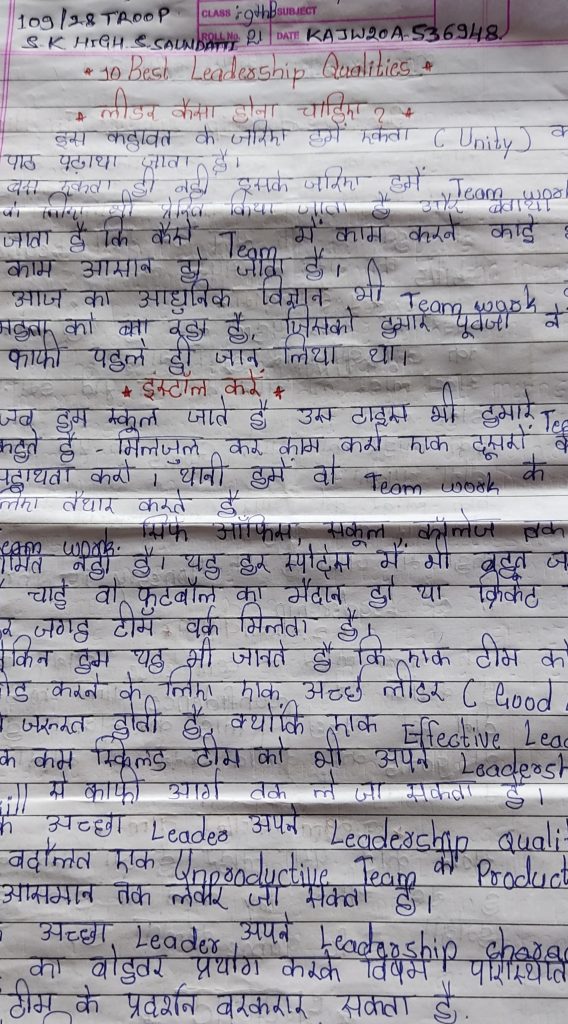 109/28 TROOP
CLASS: 9thB SUBJECT
S.K HIGH S. SAUNDATTI
ROLL No. 21 DATE KAJW20A-536948
* 10 Best Leadership Qualities *
* लीडर कैसा होना चाहिए ? *
इस कहावत के जरिए हमें एकता ( Unity )
पाठ पढ़ाया जाता है।
बस एकता ही नहीं इसके जरिए हमें Team work
के लिए भी प्रेरित किया जाता है और बताया
जाता है कि कैसे Team में काम करने
काम आसान हो जाता है।
आज का आधुनिक विज्ञान भी Team work
महत्ता को बता रहा है, जिसको हमारे पूर्वजो ने
काफी पहले ही जान लिया था।
* इंस्टॉल करें *
जब हम स्कूल जाते है उस टाइम भी हमारे
कहते है - मिलजुल कर काम करो एक दूसरों
सहायता करो। यानी हमें वो Team work के
लिए तैयार करते है
Team work सिर्फ ऑफिस, सकूल, कॉलेज तक
नहीं है। यह हर स्पोर्ट्स में भी बहुत
चाहे वो फुटबॉल का मैदान हो या क्रिकेट
जगह टीम वर्क मिलता है।
लेकिन हम यह भी जानते है कि एक टीम को
करने के लिए एक अच्छे लीडर ( Good
जरूरत होती है, क्योंकि एक Effective
कम स्किल्ड टीम को भी अपने
से काफी आगे तक ले जा सकता है।
अच्छा Leader अपने Leadership
बदौलत एक Unproductive Team को
आसमान तक लेकर जा सकता है।
अच्छा Leader अपने Leadership
का बेहतर प्रयोग करके विषम
टीम के प्रदर्शन बरकरार सकता है.